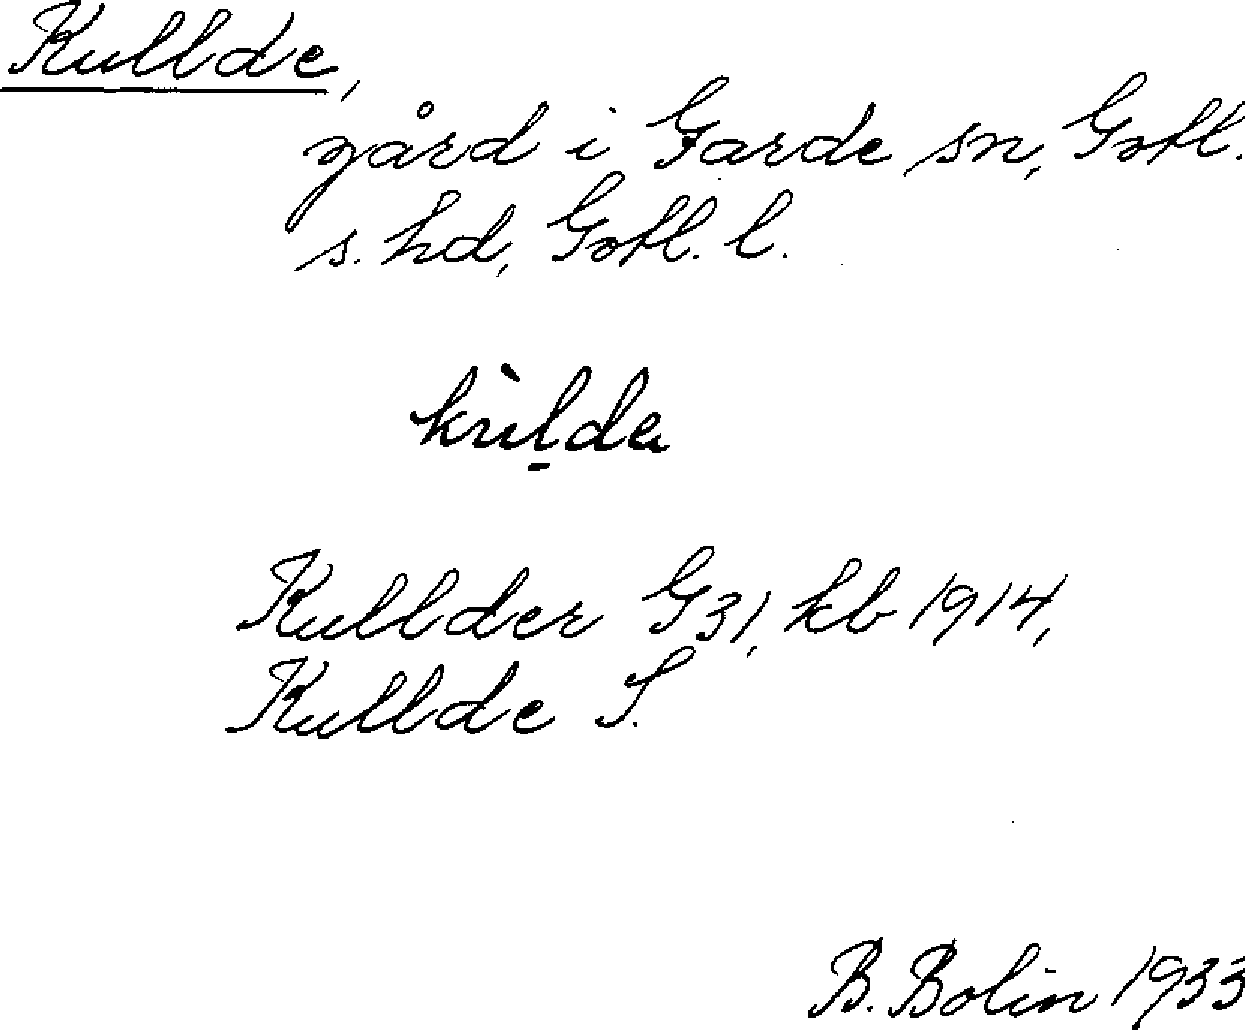 Kullde,
gård i Garde sn, Gotl.
s. hd, Gotl. l.
kùl̠de
Kullder G31, kb 1914,
Kullde S.
B. Bolin 1933